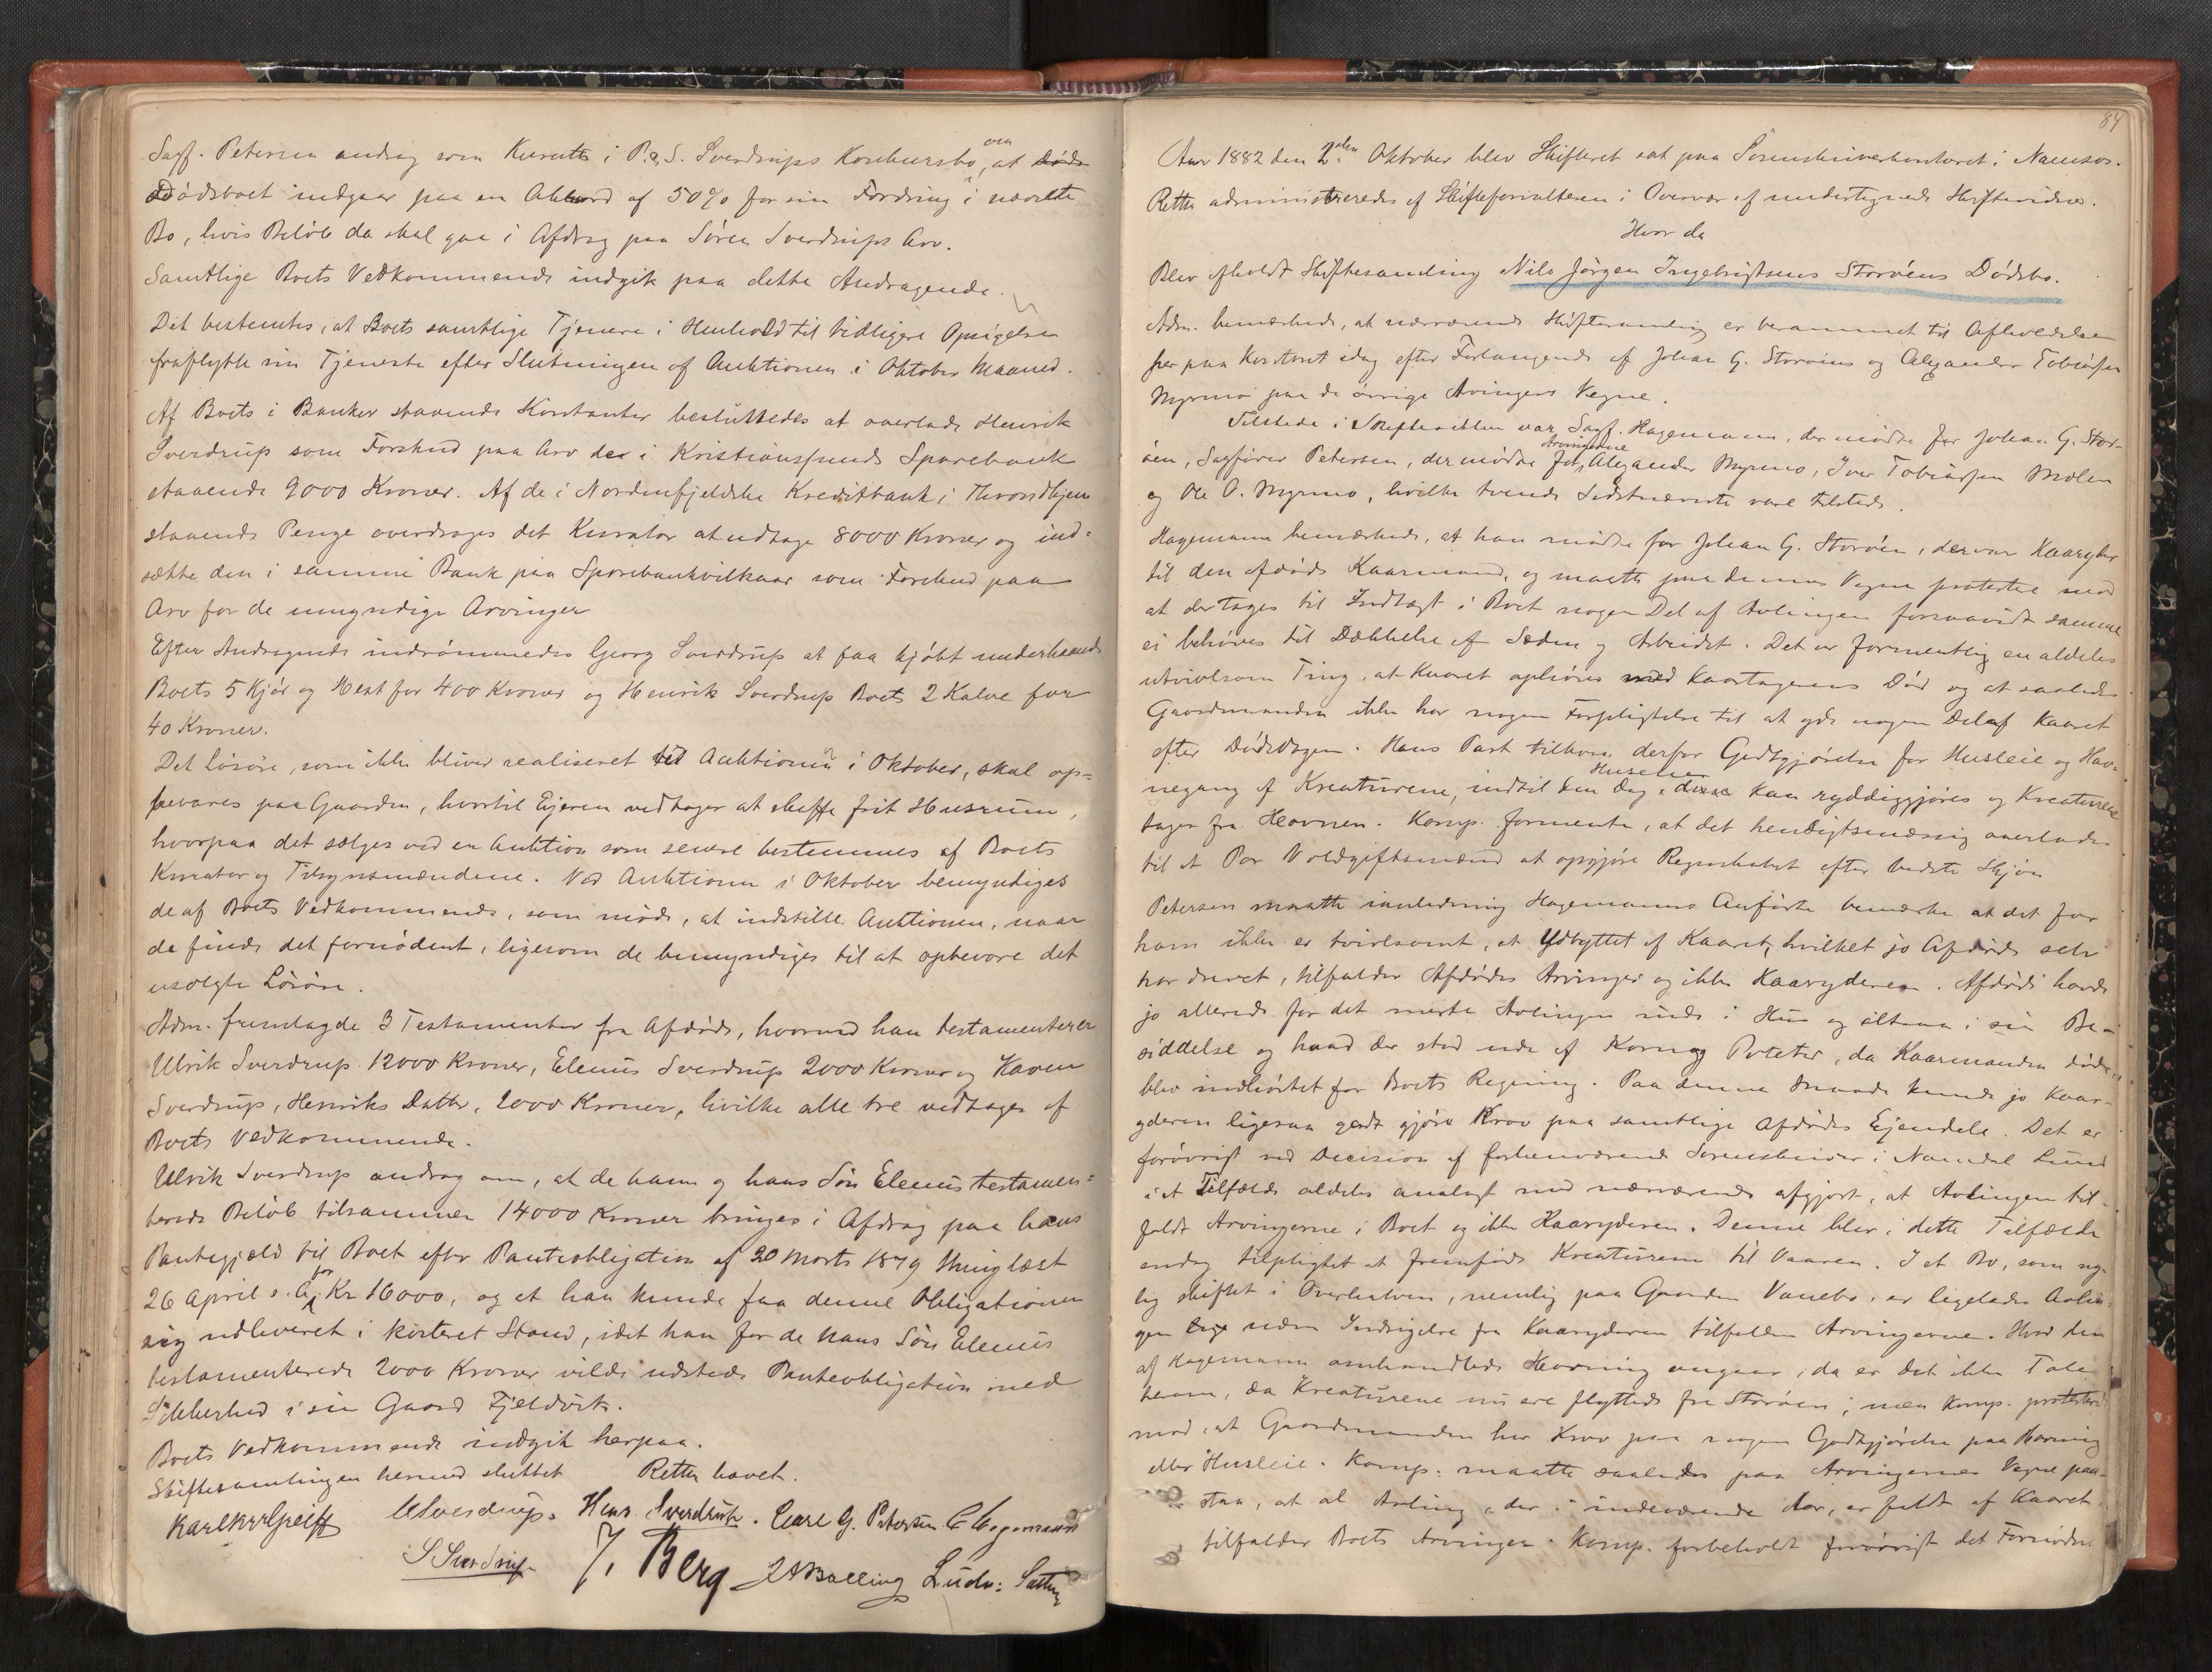 Sagf. Petersen andrag som Kurator i P. & S. Sverdrups Konkursbo, om at
Dødsboet indgaar paa en Akkord af 50% for sin Fordring i nævnte
Bo, hvis Beløb da skal gaa i Afdrag paa Søren Sverdrups Arv.
Samtlige Boets Vedkommende indgik paa dette Andragende.
Det bestemtes, at Boets samtlige Tjenere i Henhold til tidligere Opsigelse
fraflytte sin Tjeneste efter Slutningen af Auktionen i Oktober Maaned.
Af Boets i Banker staaende Kontanter besluttedes at overlade Henrik
Sverdrup som Forskud paa Arv de i Kristianssunds Sparebank
staaende 9000 Kroner. Af de i Nordenfjeldske Kreditbank i Throndhjem
staaende Penge overdrages det Kurator at udtage 8000 Kroner og ind-
sætte den i samme Bank paa Sparebankvilkaar som Forskud paa
Arv for de umyndige Arvinger
Efter Andragende indrømmedes Georg Sverdrup at faa kjøbt underhaanden
Boets 5 Kjør og Hest for 400 Kroner og Henrik Sverdrup Boets 2 Kalve for
40 Kroner.
Det Løsøre, som ikke bliver realiseret ved Auktionen i Oktober, skal op-
bevares paa Gaarden, hvortil Ejeren vedtager at skaffe frit Husrum,
hvorpaa det sælges ved en Auktion som senere bestemmes af Boets
Kurator og Tilsynsmændene. Ved Auktionen i Oktober bemyndiges
de af Boets Vedkommende, som møde, at indstille Auktionen, naar
de finde det fornødent, ligesom de bemyndiges til at opbevare det
usolgte Løsøre.
Adm. fremlagde 3 Testamenter fra Afdøde, hvorved han testamenterer
Ulrik Sverdrup 12000 Kroner, Elenius Sverdrup 2000 Kroner og Karen
Sverdrup, Henriks Datter, 2000 Kroner, hvilke alle tre vedtages af
Boets Vedkommende.
Ulrik Sverdrup andrag om, at de ham og hans Søn Elenius testamen-
terede Beløb tilsammen 14000 Kroner bringes i Afdrag paa hans
Pantegjæld til Boet efter Panteobligation af 20 Marts 1879 thinglæst
26 April s. A. for Kr 16000, og at han kunde faa denne Obligationen
sig udleveret i kvitteret Stand, idet han for de hans Søn Elenius
testamenterede 2000 Kroner vilde udstede Panteobligation med
Sikkerhed i sin Gaard Fjeldvik.
Boets Vedkommende indgik herpaa.
Skiftesamlingen hermed sluttet Retten hævet.
Ulverdrup. Henr. Sverdrup. Carl G. Petersen C Hagemann
S Sverdrup J. Berg Ludv:
84
Aar 1882 den 2den Oktober blev Skifteret sat paa Sorenskriverkontoret i Namsos.
Retten administreredes af Skifteforvalteren i Overvær af undertegnede Skiftevidner.
Hvor da
Blev afholdt Skiftesamling Nils Jörgen Ingebrigtsens Storöens Dødsbo.
Adm. bemærkede, at nærværende Skiftesamling er berammet til Afholdelse
her paa Kontoret idag efter Forlangende af Johan G. Storøens og Alexander Tobiassen
Myrmo paa de øvrige Arvingers Vegne.
Tilstede i Skifteretten var Sagf. Hagemann, der mødte for Johan G. Stor-
øen, Sagfører Petersen, der mødte for Arvingerne Alexander Myrmo, Iver Tobiassen Mølen
og Ole O. Myrmo, hvilke tvende sidstnævnte vare tilstede.
Hagemann bemærkede, at han mødte for Johan G. Storøen, der var Kaaryder
til den afdøde Kaarmand, og maatte paa dennes Vegne protestere mod
at der tages til Indtægt i Boet nogen Del af Avlingen forsaavidt samme
ei behøves til Dækkelse af Sæden og Arbeidet. Det er formentlig en aldeles
utvivlsom Ting, at Kaaret ophører med Kaartagerens Død og at saaledes
Gaardmanden ikke har nogen Forpligtelse til at yde nogen Del af Kaaret
efter Dødsdagen. Hans Part tilkom derfor Godtgjørelse for Husleie og Hav-
negang af Kreaturene, indtil den Dag Husene kan ryddiggjøres og Kreaturene
tages fra Havnen. Komp. formente, at det hensigtsmæssig overlades
til et Par Voldgiftsmænd at opgjøre Regnskabet efter bedste Skjøn
Petersen maatte ianledning Hagemanns Anførte bemærke at det for
ham ikke er tvivlsomt, at Udbyttet af Kaaret, hvilket jo Afdøde selv
har drevet, tilfalder Afdødes Arvinger og ikke Kaaryderen. Afdøde havde
jo allerede for det meste Avlingen inde i Hus og altsaa i sin Be-
siddelse og hvad der stod ude af Korn og Poteter, da Kaarmanden døde,
blev indhøstet for Boets Regning. Paa denne Maade kunde jo Kaar-
yderen ligesaa godt gjøre Krav paa samtlige Afdødes Ejendele. Det er
forøvrigt ved Decision af forhenværende Sorenskriver i Namdal Lund
i et Tilfælde aldeles analogt med nærværende afgjort, at Avlingen til-
faldt Arvingerne i Boet og ikke Kaaryderen. Denne blev i dette Tilfælde
endog tilpligtet at fremføde Kreaturene til Vaaren. I et Bo, som ny-
lig skiftet i Overhalven, nemlig paa Gaarden Vannebo, er ligeledes Avlin-
gen uden Indsigelse fra Kaaryderen tilfalden Arvingerne. Hvad den
af Hagemann omhandlede Havning angaar, da er det ikke Tale
herom, da Kreaturene nu ere flyttede fra Storøen; men Komp. protesterede
mod, at Gaardmanden har Krav paa nogen Godtgjørelse paa Havning
eller Husleie. Komp. maatte saaledes paa Arvingernes Vegne paa-
staa, at al Avling, der i indeværende Aar er faldt af Kaaret,
tilfalder Boets Arvinger. Komp. forbeholdt forøvrigt det Fornødne